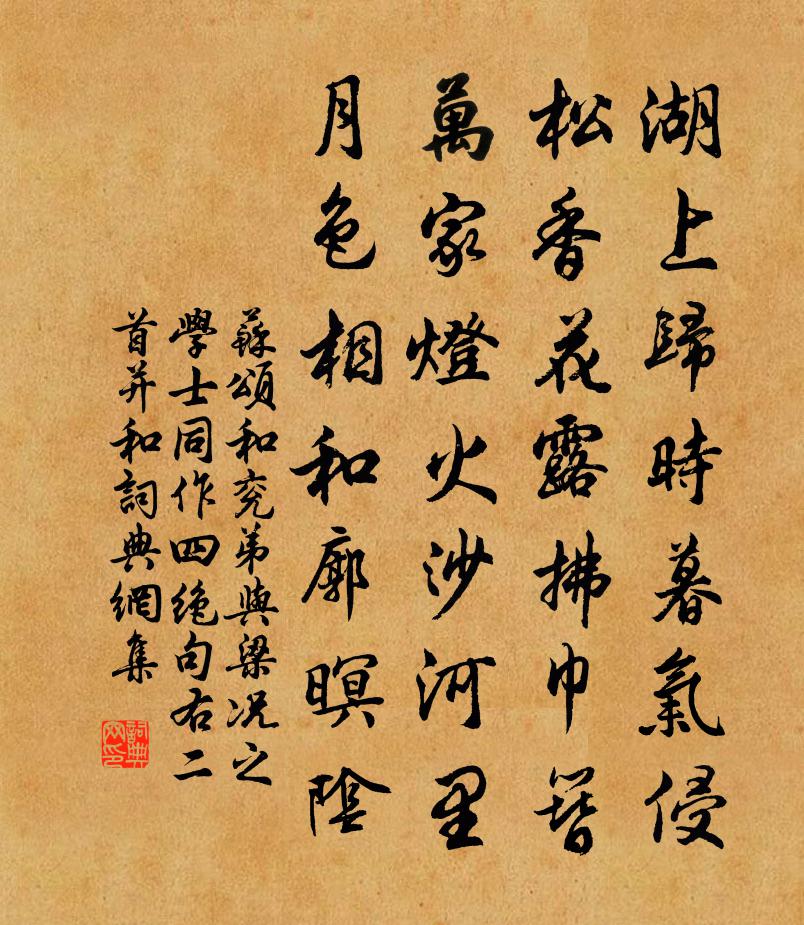 湖上歸時暮氣侵
松香花露拂巾簪
萬家燈火沙河里
月色相和廓暝陰
蘇頌和兖弟與梁况之
學士同作四絶句右二
首并和詞典網集
詞典
网印